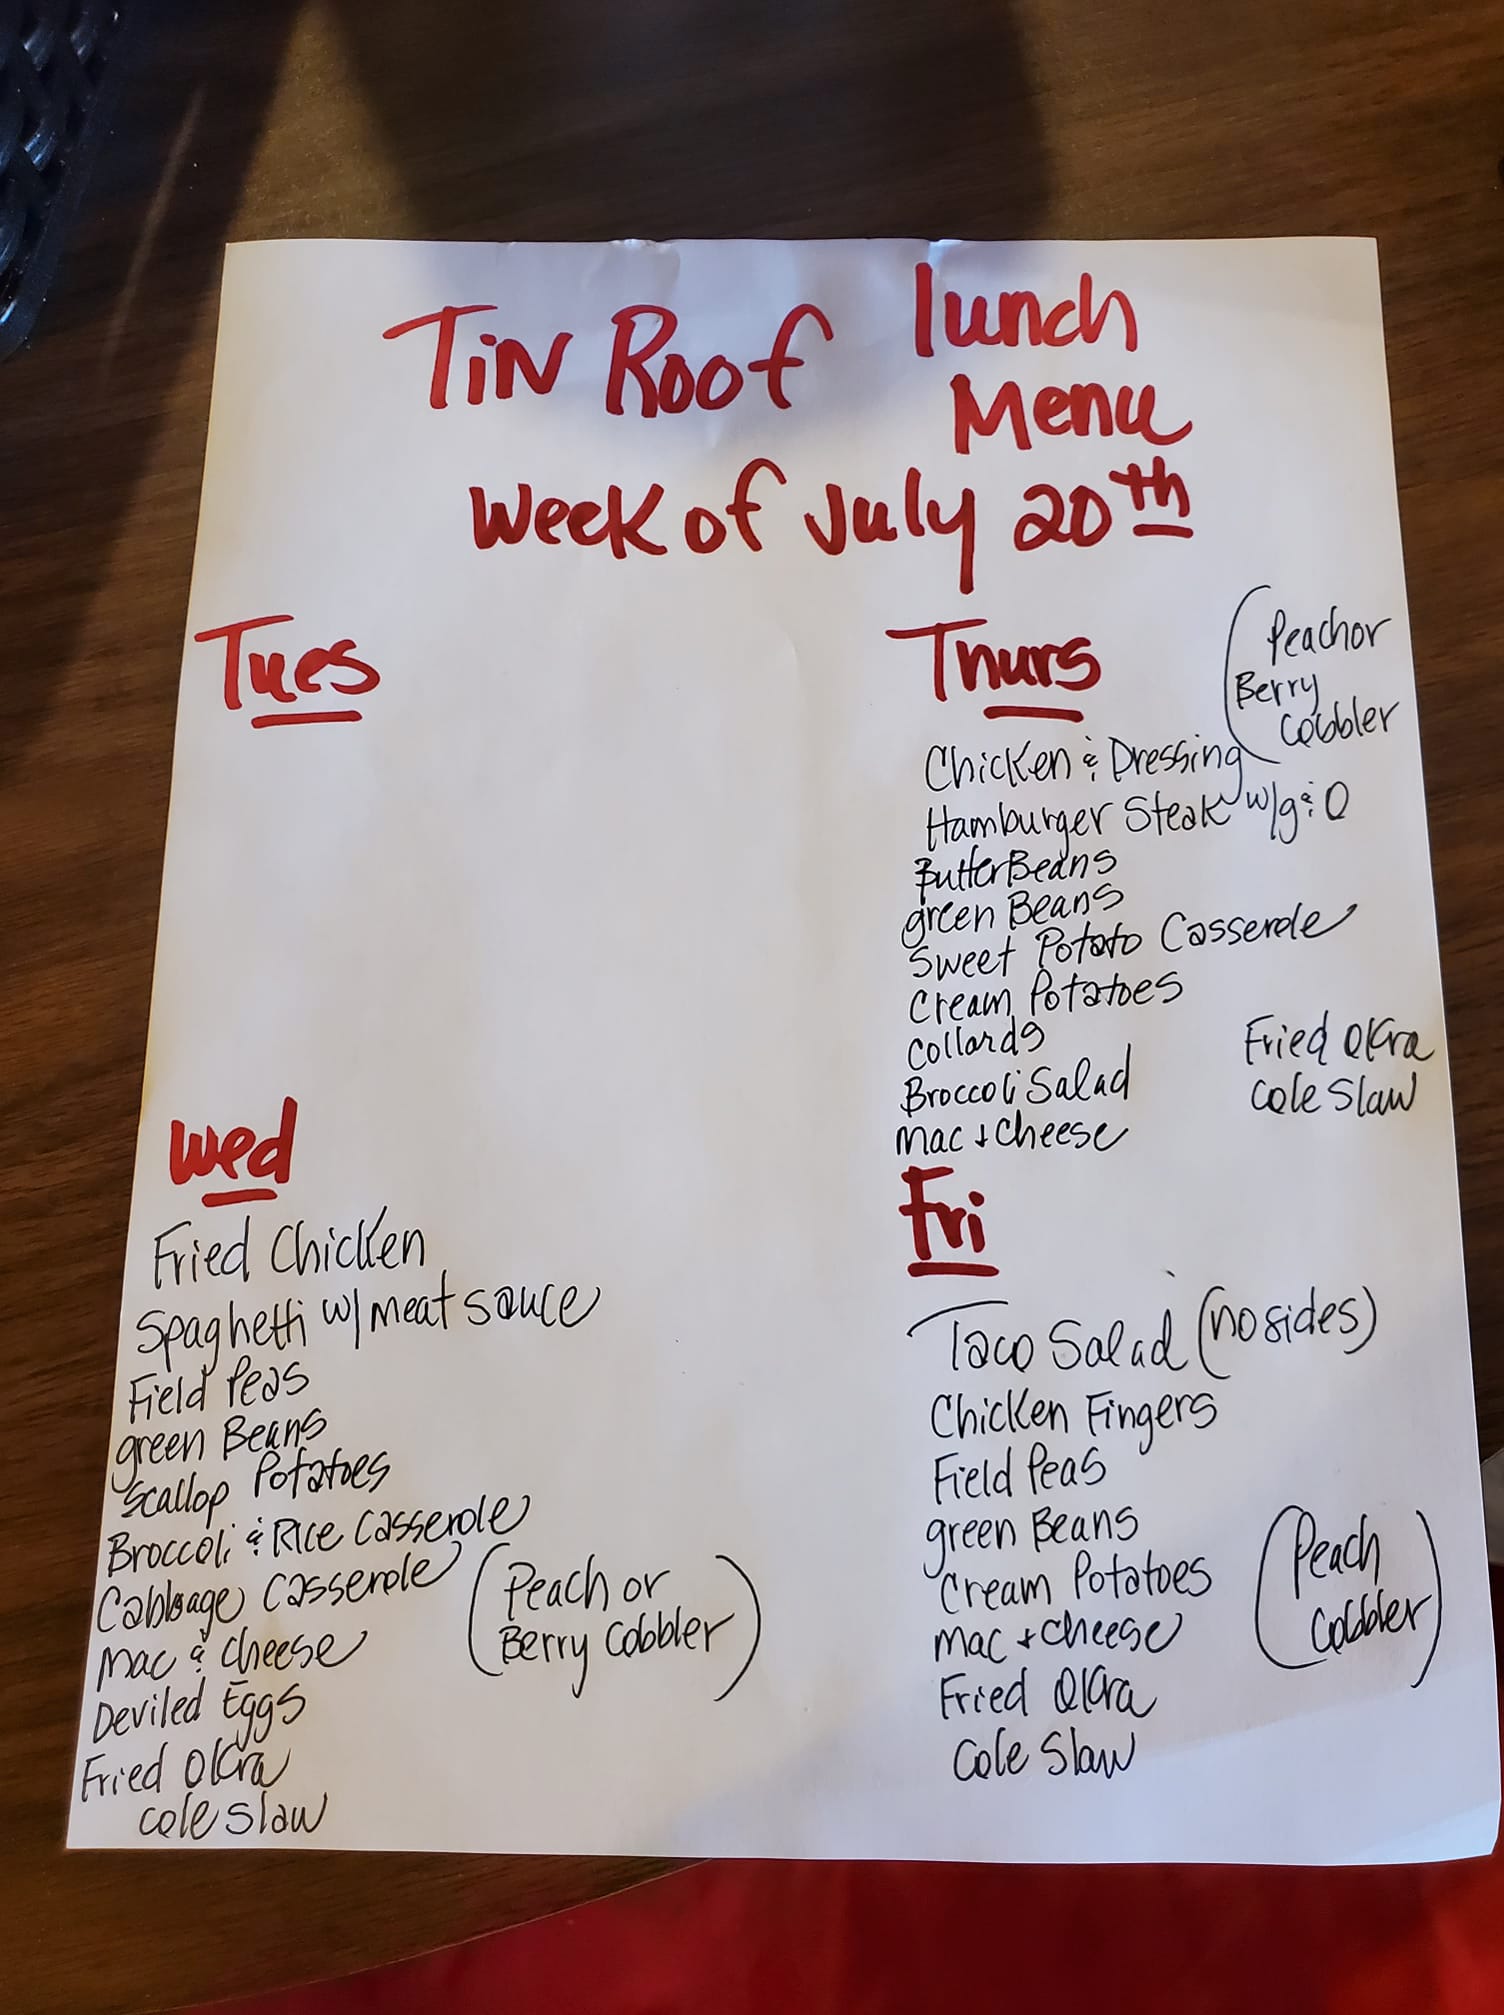 Tin Roof lunch
Menu
Week of July 20th
Tues
Wed
Fried Chicken
Spaghetti w/ meat sauce
Field Peas
green Beans
Scallop Potatoes
Broccoli & Rice Casserole
Cabbage Casserole
Mac & Cheese
Deviled Eggs
Fried Okra
Cole Slaw
(Peach or
Berry Cobbler)
Thurs
(Peach or
Berry
Cobbler
Chicken & Dressing
Hamburger Steak w/g & O
Butter Beans
green Beans
Sweet Potato Casserole
Cream Potatoes
Collards
Broccoli Salad
Mac + Cheese
Fried Okra
Cole Slaw
Fri
Taco Salad (no sides)
Chicken Fingers
Field Peas
green Beans
Cream Potatoes
Mac + Cheese
Fried Okra
Cole Slaw
(Peach
Cobbler)